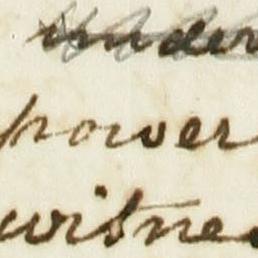 under
power
witnes